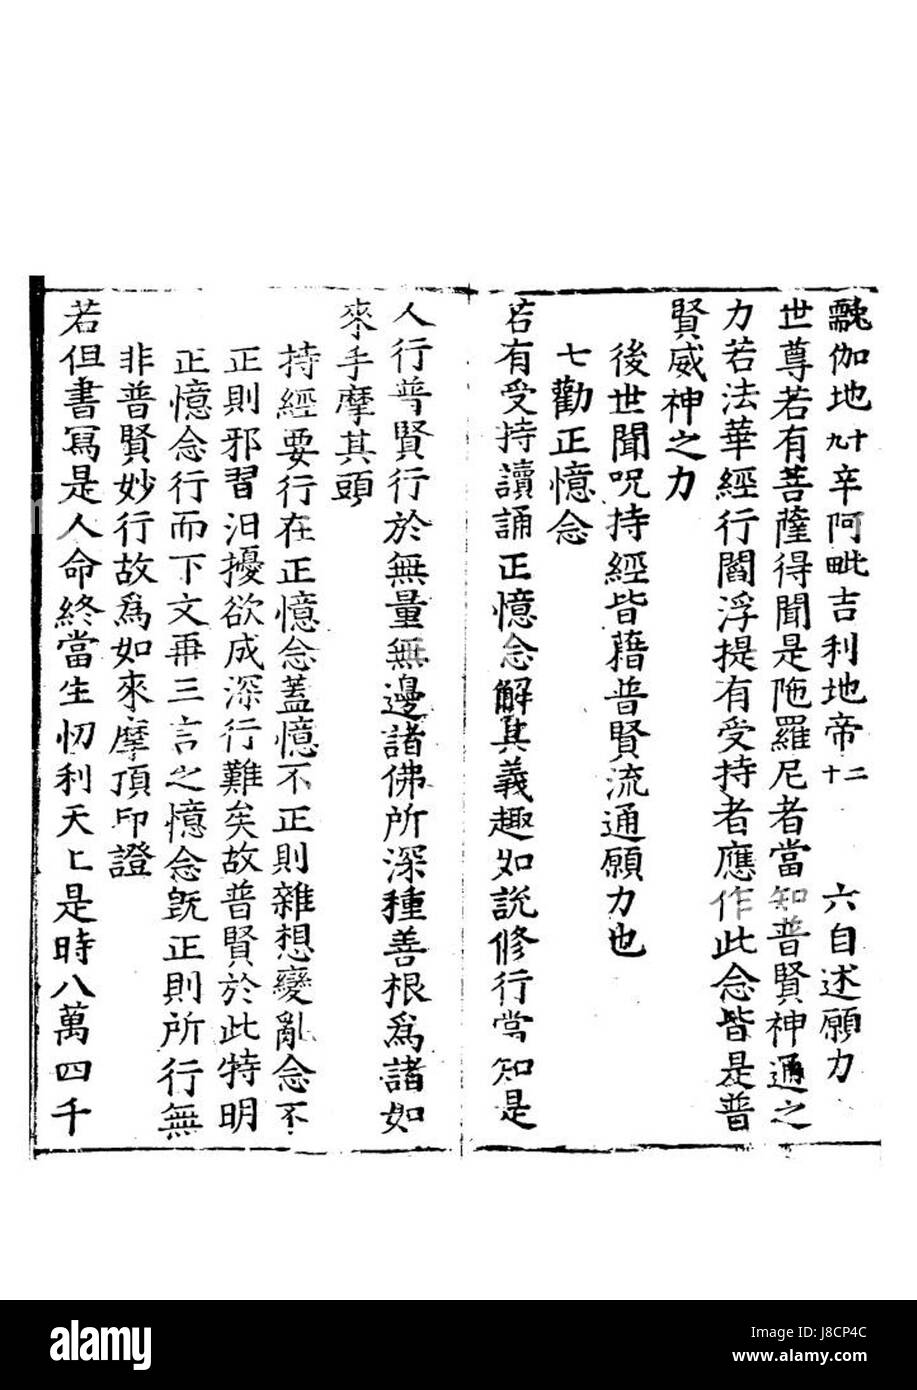 䨲伽地九十辛阿毗吉利地帝二十 六自述願力
世尊若有菩薩得聞是陁羅尼者當知普賢神通之
力若法華經行閻浮提有受持者應作此念皆是普
賢威神之力
後世聞呪持經皆藉普賢流通願力也
七勸正憶念
若有受持讀誦正憶念解其義趣如說修行當知是
人行普賢行於無量無邊諸佛所深種善根爲諸如
來手摩其頭
持經要行在正憶念蓋憶不正則雜想變亂念不
正則邪習汩擾欲成深行難矣故普賢於此特明
正憶念行而下文再三言之憶念旣正則所行無
非普賢妙行故爲如來摩頂印證
若但書寫是人命終當生忉利天上是時八萬四千
alamy
Image ID: J8CP4C
www.alamy.com